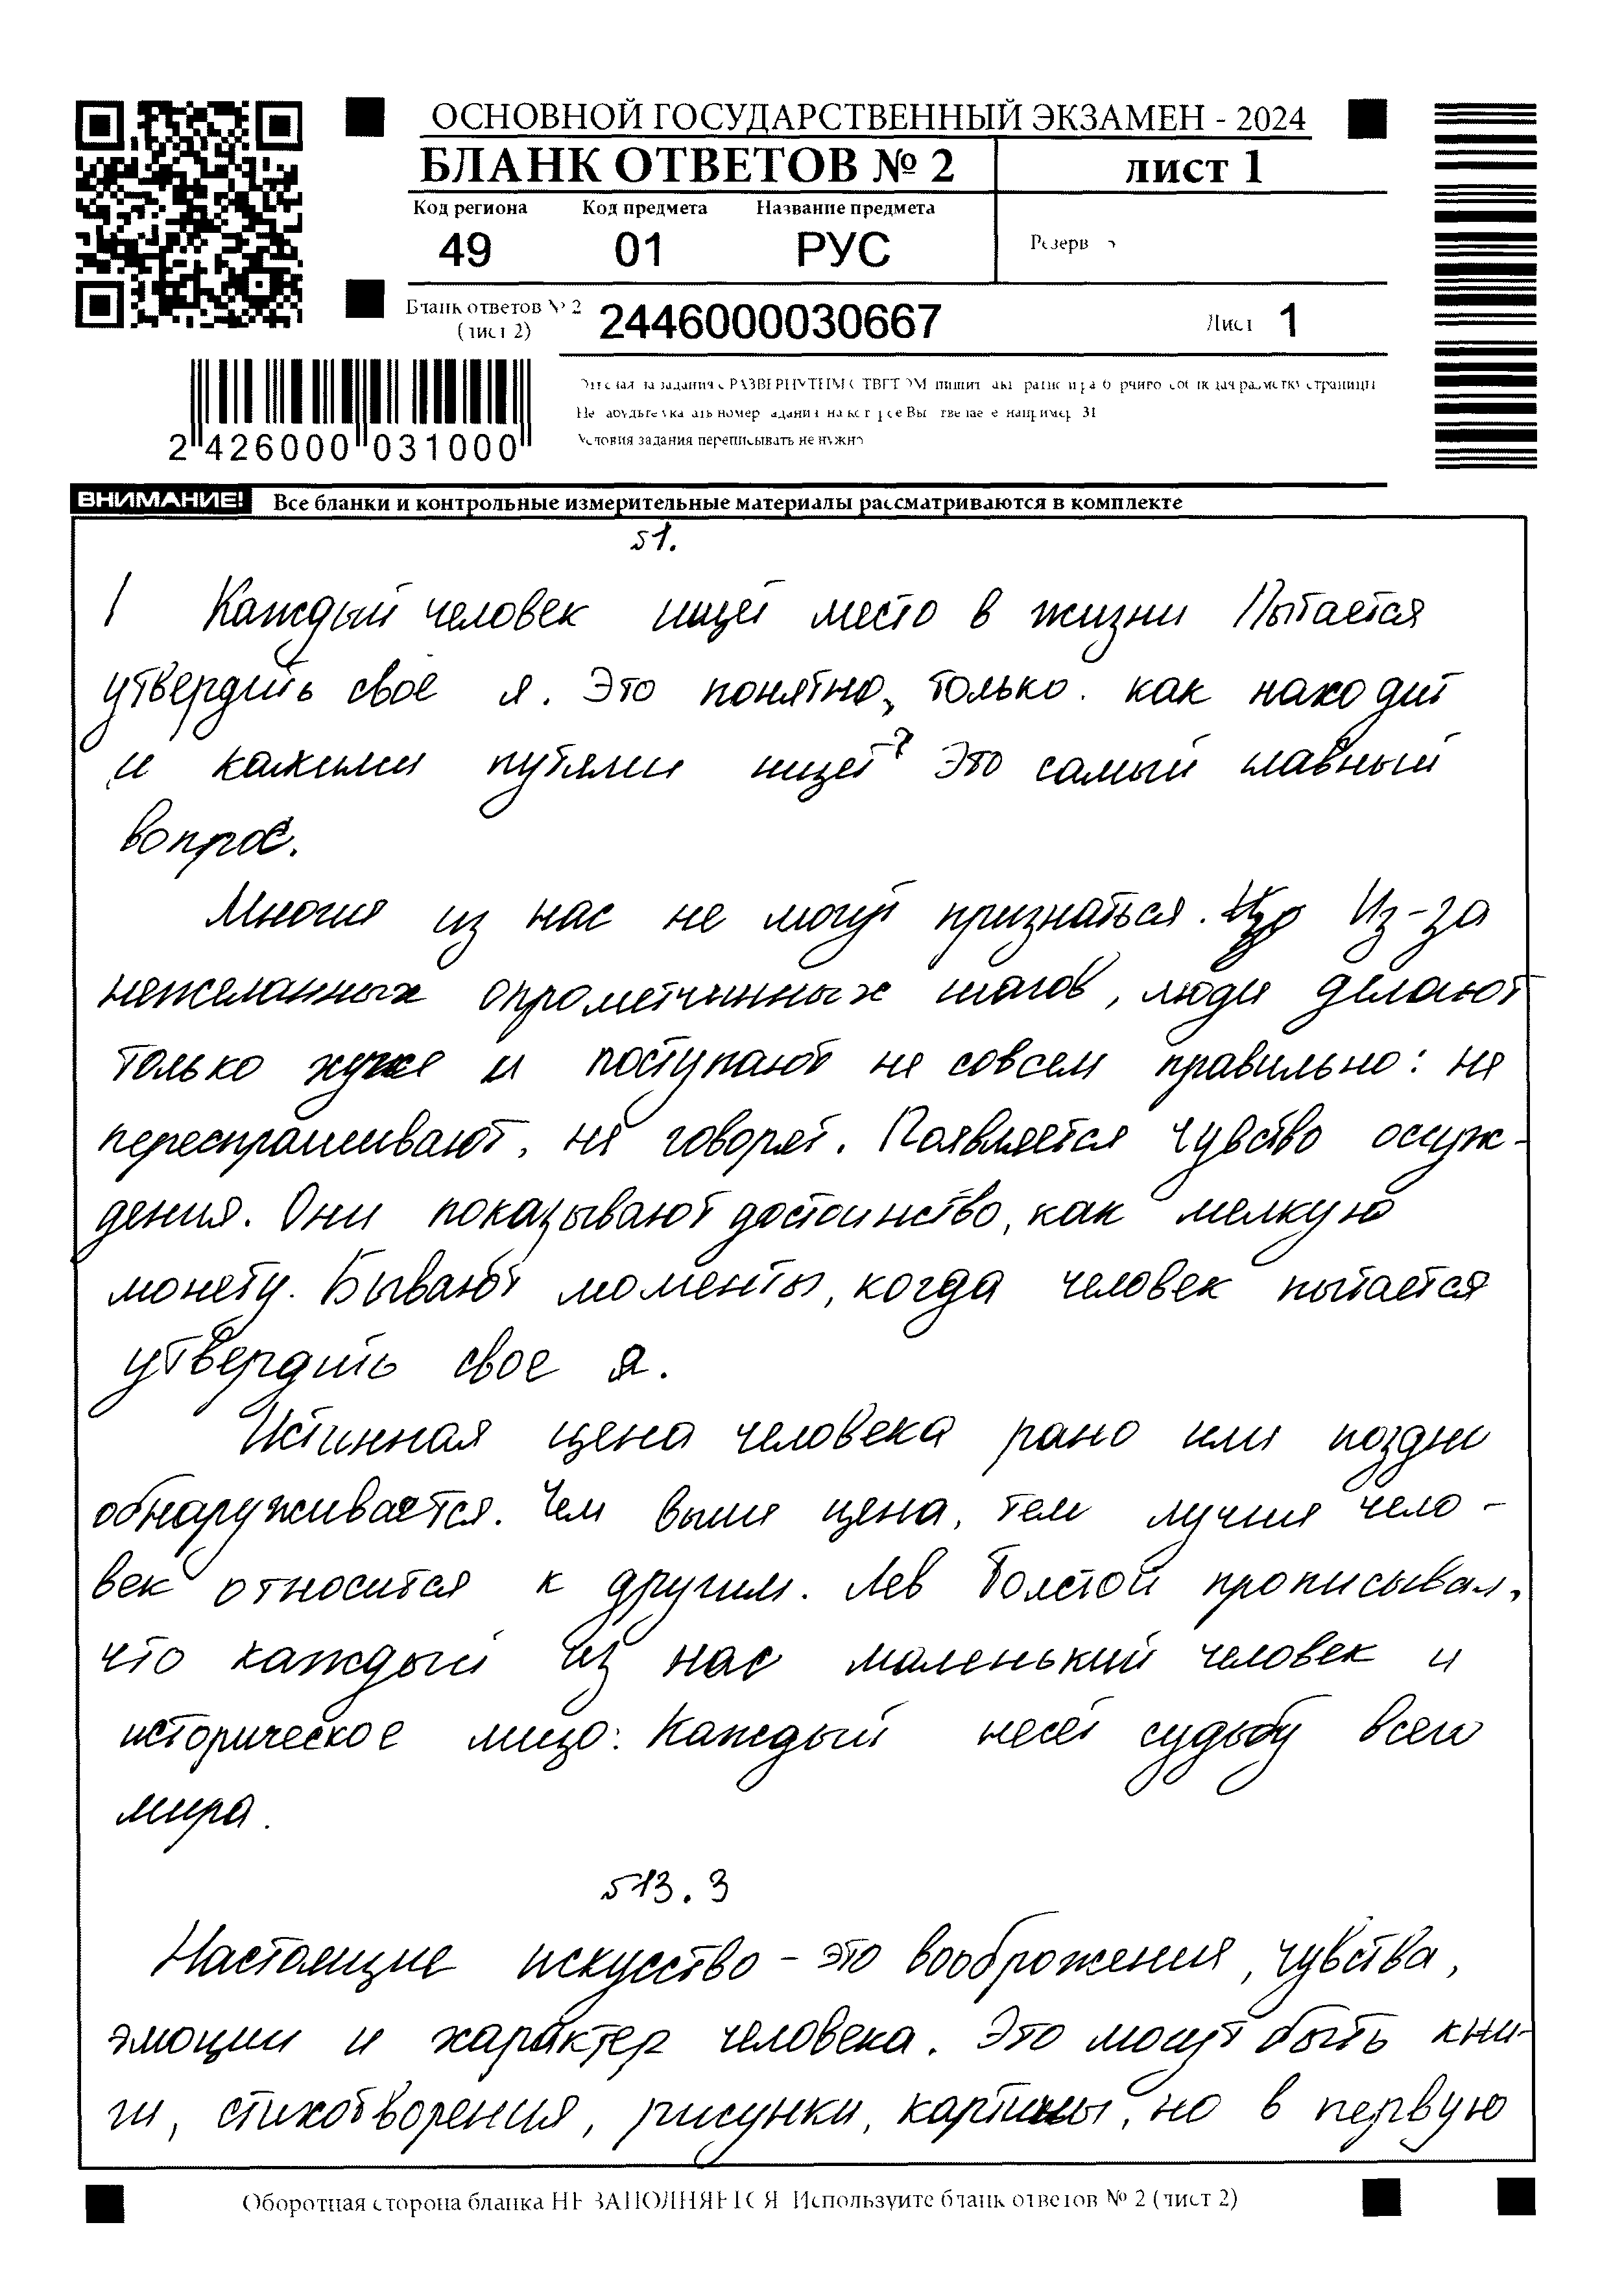 ОСНОВНОЙ ГОСУДАРСТВЕННЫЙ ЭКЗАМЕН - 2024
БЛАНК ОТВЕТОВ № 2
ЛИСТ 1
Код региона Код предмета Название предмета
49 01 РУС
Резерв
Бланк ответов № 2
(лист 2)
2446000030667
Лист 1
2 426000 031000
Условия задания переписывать не нужно
ВНИМАНИЕ! Все бланки и контрольные измерительные материалы рассматриваются в комплекте
51.
Каждый человек ищет место в жизни Пытается
утвердить свое я. Это понятно, только. как находит
и какими путями ищет? Это самый главный
вопрос.
Многие из нас не могут признаться. Из-за
нежеланных опрометчинных шагов, люди делают
только хуже и поступают не совсем правильно: не
переспрашивают, не говорят. Появляется чувство осуж-
дения. Они показывают достоинство, как мелкую
монету. Бывают моменты, когда человек пытается
утвердить свое я.
Истинная цена человека рано или поздне
обнаруживается. Чем выше цена, тем лучше чело-
век относится к другим. Лев Толстой прописывал,
что каждый из нас маленький человек и
историческое лицо: Каждый несет судьбу всего
мира.
513.3
Настоящие искусство - это вооброжения, чувства,
эмоции и характер человека. Это могут быть кни-
ги, стихотворения, рисунки, картины, но в первую
Оборотная сторона бланка НЕ ЗАПОЛНЯЕТСЯ Используйте бланк ответов № 2 (лист 2)